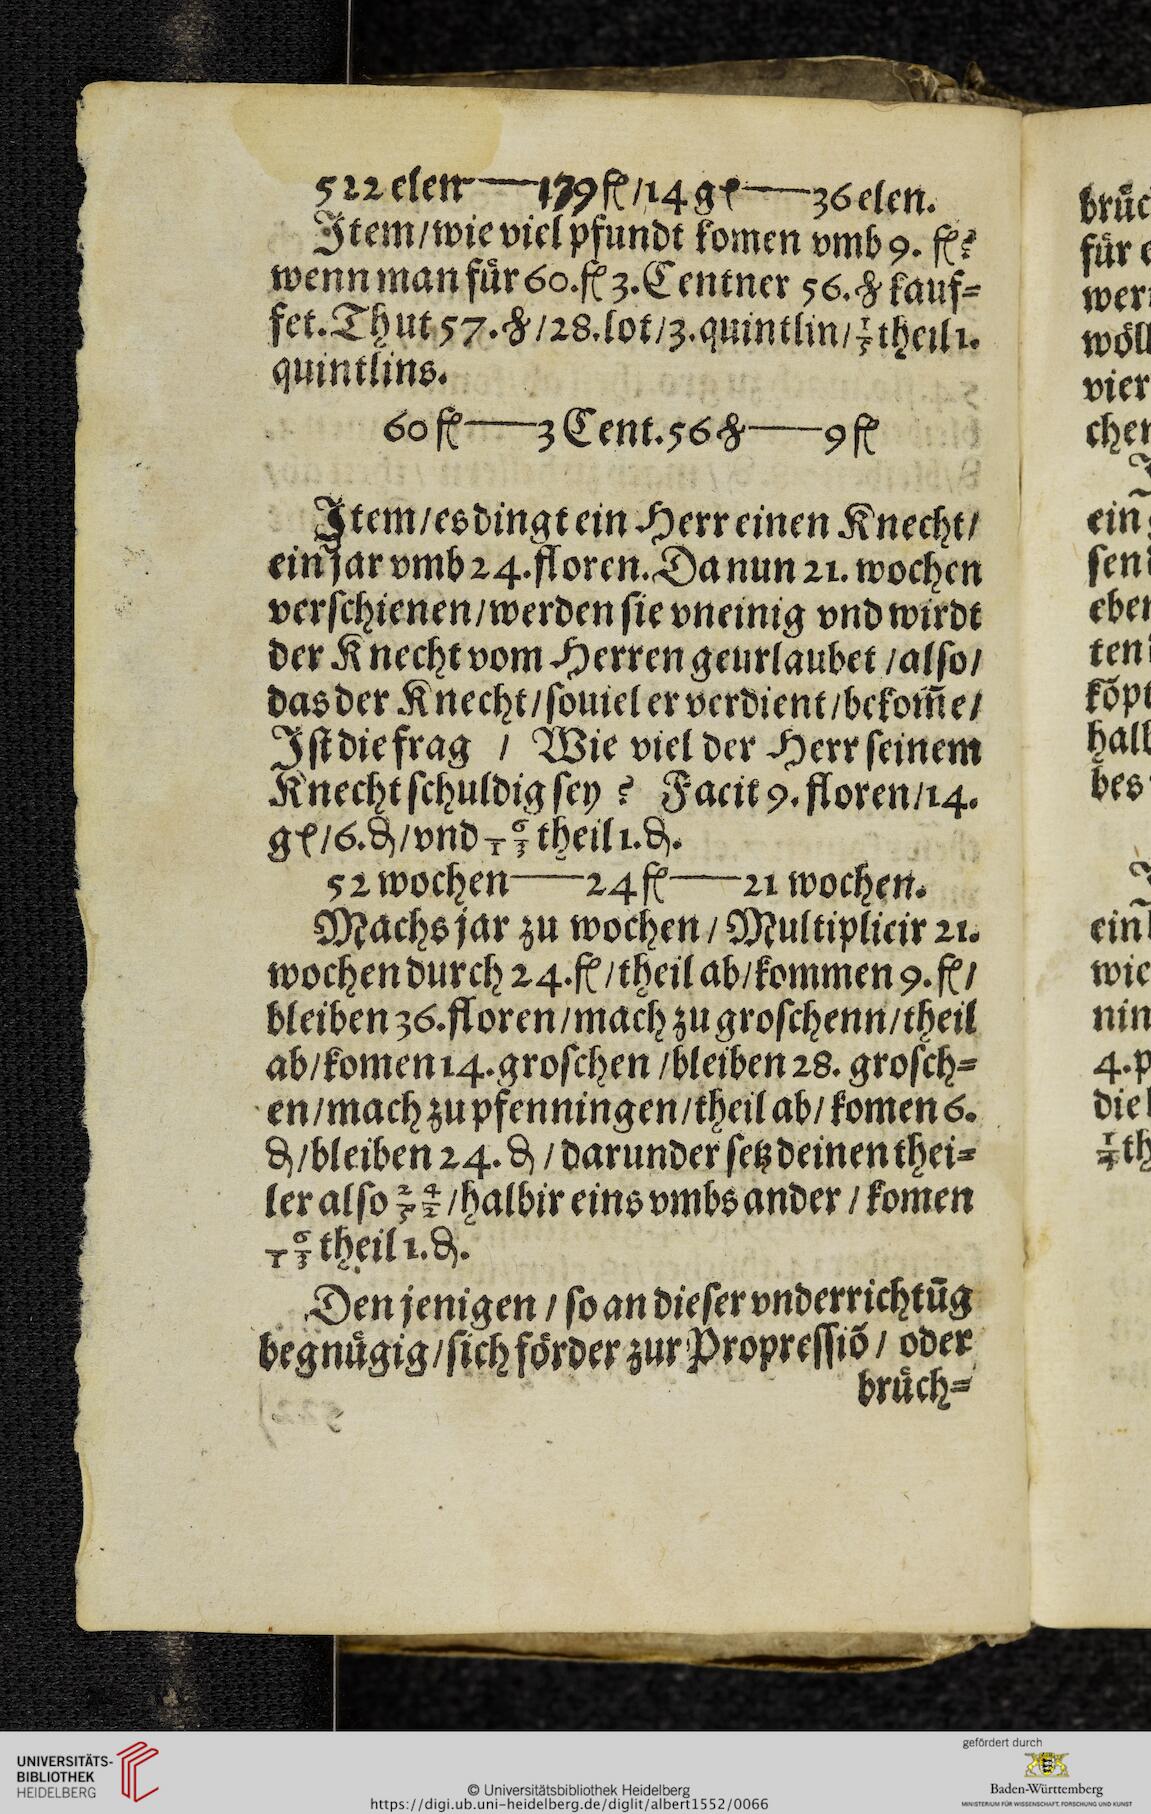 522 elen — 179 fl/14 gl — 36 elen.
Item/wie viel pfundt komen vmb 9. fl?
wenn man für 60. fl 3. Centner 56. ℔ kauf=
fet. Thut 57. ℔/28. lot/3. quintlin/ 1/5 theil 1.
quintlins.
60 fl — 3 Cent. 56 ℔ — 9 fl
Item/es dingt ein Herr einen Knecht/
ein jar vmb 24. floren. Da nun 21. wochen
verschienen/werden sie vneinig vnd wirdt
der Knecht vom Herren geurlaubet/also/
das der Knecht/souiel er verdient/bekom̄e/
Ist die frag / Wie viel der Herr seinem
Knecht schuldig sey ? Facit 9. floren/14.
gl/6. ₰/vnd 6/13 theil 1. ₰.
52 wochen — 24 fl — 21 wochen.
Machs jar zu wochen/Multiplicir 21.
wochen durch 24. fl/theil ab/kommen 9. fl/
bleiben 36. floren/mach zu groschenn/theil
ab/komen 14. groschen /bleiben 28. grosch=
en/mach zu pfenningen/theil ab/komen 6.
₰/bleiben 24. ₰ / darunder setz deinen thei=
ler also 24/52 /halbir eins vmbs ander / komen
6/13 theil 1. ₰.
Den jenigen / so an dieser vnderrichtūg
begnügig/sich förder zur Propressiō / oder
brüch=
brüc
für
wer
wöll
vier
cher
ein
send
eben
ten
köpt
halb
bes
ein
wie
nin
4. p
die
1/4 th
UNIVERSITÄTS-
BIBLIOTHEK
HEIDELBERG
© Universitätsbibliothek Heidelberg
https://digi.ub.uni-heidelberg.de/diglit/albert1552/0066
gefördert durch
Baden-Württemberg
MINISTERIUM FÜR WISSENSCHAFT, FORSCHUNG UND KUNST